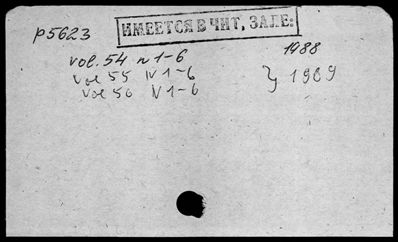 ИМЕЕТСЯ В ЧИТ, ЗАЛЕ:
р5623
vol. 54 n 1-6 1988
vol 55 N 1-6 } 1989
vol 56 N 1-6